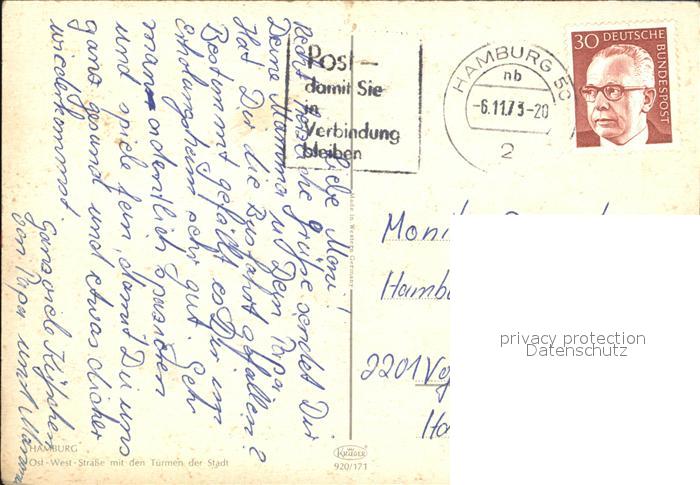 Liebe Moni!
Recht herzliche Grüße sendet Dir
Deine Mamma u. Dein Papa
Hat Dir die Busfahrt gefallen?
Bestimmt gefällt es Dir im
Erholungsheim sehr gut. Geh
man ordentlich spazieren
und spiele fein, damit Du uns
ganz gesund und etwas dicker
wiederkommst.
Ganz viele Küßchen
von Papa und Mamma
POST –
damit Sie
in
Verbindung
bleiben
HAMBURG 50
nb
-6.11.73-20
2
30 DEUTSCHE
BUNDESPOST
Made in Western Germany
Moni
Hamb
2201
privacy protection
Datenschutz
HAMBURG
Ost-West-Straße mit den Türmen der Stadt
KRÜGER
920/171